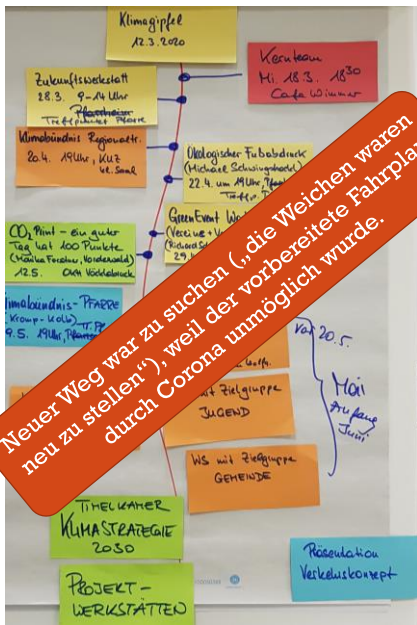 Klimagipfel
12.3.2020
Kernteam
Mi. 18.3. 18³⁰
Cafe Wimmer
Zukunftswerkstatt
28.3. 9-14 Uhr
Pfarrheim
Treffpunkt Pfarre
Klimabündnis Regionaltr.
20.4. 19Uhr, KUZ
kl. Saal
Ökologischer Fußabdruck
(Michael Schwingshackl)
22.4. um 19Uhr,
Treffp.
Green Event
(Vereine +
(Richard
29.
CO₂ Print - ein guter
Tag hat 100 Punkte
12.5.
Klimabündnis-PFARRE
9.5. 19Uhr,
Neuer Weg war zu suchen („die Weichen waren
neu zu stellen“), weil der vorbereitete Fahrplan
durch Corona unmöglich wurde.
vor 20.5.
Mai
Anfang
Juni
mit Zielgruppe
JUGEND
WS mit Zielgruppe
GEMEINDE
TIMELKAMER
KLIMASTRATEGIE
2030
Präsentation
Verkehrskonzept
PROJEKT-
WERKSTÄTTEN